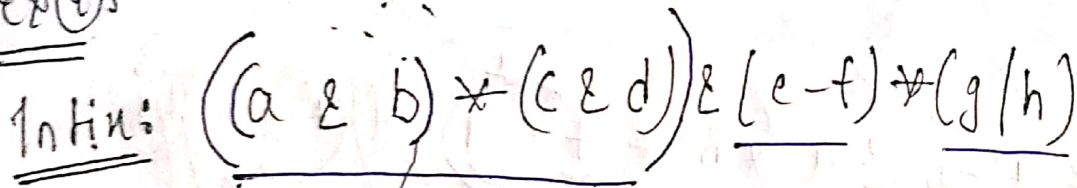 Infix: ((a & b) * (c & d)) & (e - f) * (g / h)